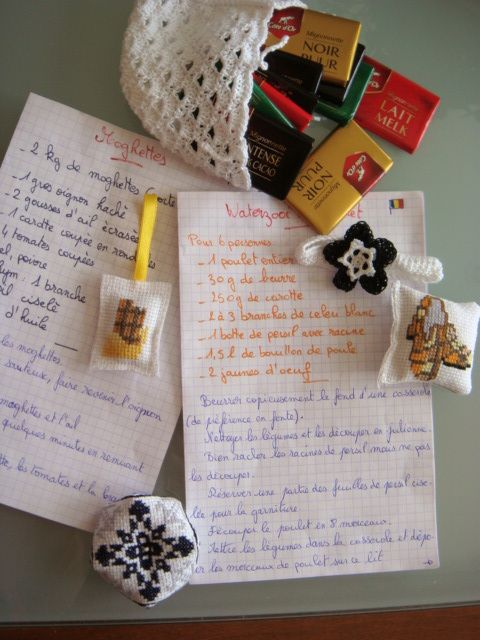 Côte d'Or
Mignonnette
NOIR
PUUR
Mignonnette
LAIT
MELK
Mignonnette
INTENSE
CACAO
Mignonnette
NOIR
PUUR
Moghettes
- 2 kg de moghettes
- 1 gros oignon haché
- 2 gousses d'ail écrasées
- 1 carotte coupée en
4 tomates coupées
sel, poivre
thym : 1 branche
ciselé
d'huile
les moghettes
sauteuse, faire revenir l'oignon
moghettes et l'ail
quelques minutes en remuant
les tomates et la
Pour 6 personnes
- 1 poulet entier
- 30 g de beurre
- 250 g de carotte
- 2 à 3 branches de céleri blanc
- 1 botte de persil avec racine
- 1,5 l de bouillon de poule
- 2 jaunes d'oeuf
Beurrer copieusement le fond d'une casserole
(de préférence en fonte).
Nettoyer les légumes et les découper en julienne.
Bien racler les racines de persil mais ne pas
les découper.
Réserver une partie des feuilles de persil cise-
lée pour la garniture.
Découper le poulet en 8 morceaux.
Mettre les légumes dans la casserole et dépo-
ser les morceaux de poulet sur ce lit